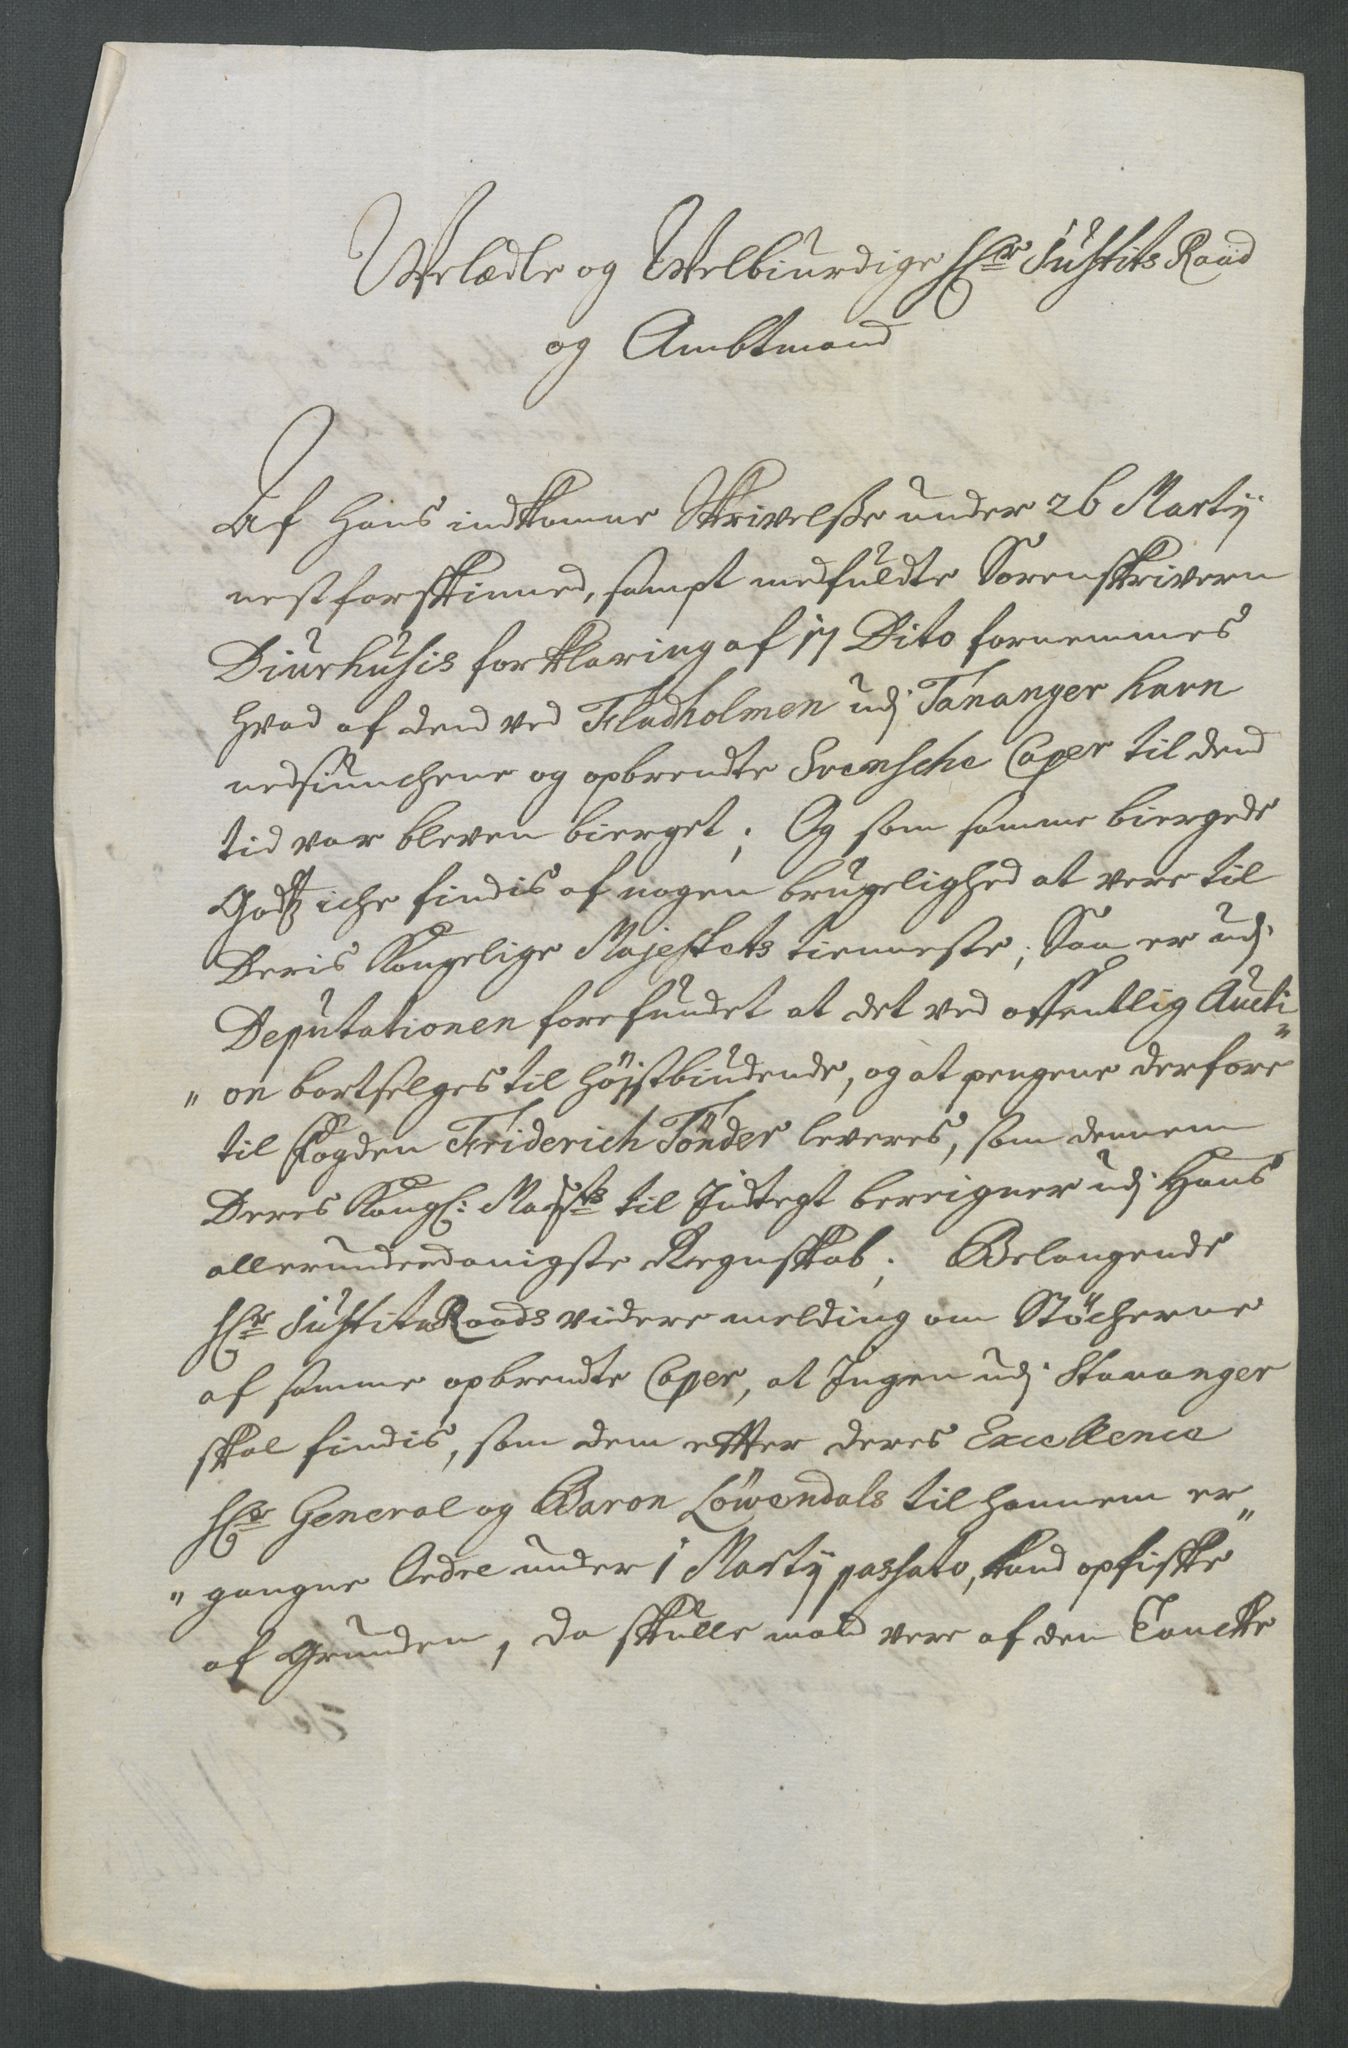 Welædle og Welbiurdige Hr Justits Raad
og Ambtmand
Af Hans indkomne Skrivelsse under 26 Martij
nestforskinned, sampt medfuldte Sorenskriveren
Diurhusis forklaring af 17 Dito fornemmes
hvad af dend ved Fladholmen udj Tananger havn
nedsiunchene og opbrendte Svensche Caper til dend
tid var bleven bierget; Og som samme biergede
Godtz iche findis af nogen brugelighed at vere til
Deris Kongelige Majestets tienneste; Saa er udj
Deputationen forefundet at det ved offentlig Aucti"
" on bortselges til høystbiudende, og at pengene derfore
til Fogden Friderich Tönder leveres, som dennem
Deres Kongl: Maysts til Indtegt bereigner udj Hans
allerunderdanigste Regnskab; Belangende
Hr Justits Raads videre melding om Støcherne
af samme opbrendte Caper, at Ingen udj Stavanger
skal findis, som dem efter deres Excellence
Hr General og Baron Löwendals til hannem er"
" gangne Ordre under 1 Martij passato, kand opfiske
af Grunden, da skulle mand vere af den Tancke